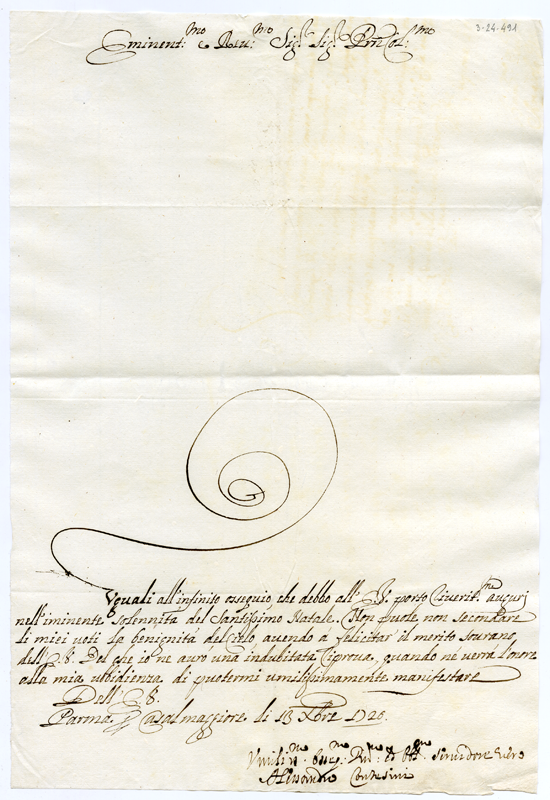 3-24-491
Eminent:mo e Reu:mo Sig.r Sig.r Prñ Col:mo
Vguali all'infinito ossequio, che debbo all' E. V. porto riuerit.mi augurj
nell'iminente Solennità del Santissimo Natale. Non puole non secondare
li miei voti la benignità del Cielo auendo à felicitar' il merito Sourano
dell' E. V. Del che io ne aurò una indubitata riproua, quando nè verrà l'onore
alla mia ubidienza di puotermi umilissimamente manifestare
Dell' E. V.
Parma Casalmaggiore li 13 Xbre 1720.
Vmiliss.mo Osseq.mo seruidore vero
Alessandro